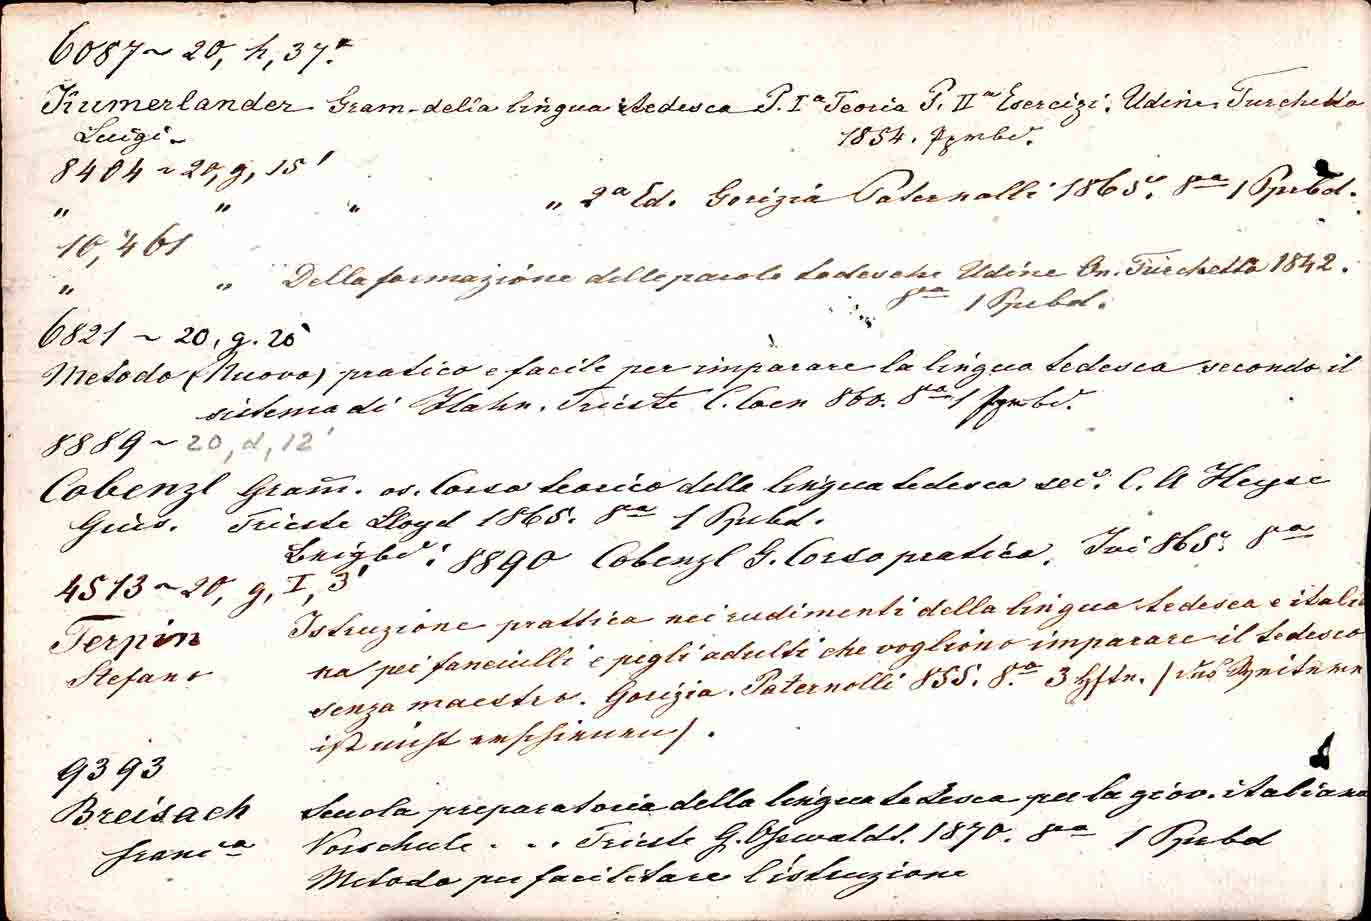 6087 ~ 20, h, 37.
Kumerlander Gram. della lingua tedesca P. Iª Teoria P. IIª Esercizi. Udine. Turchetto
Luigi. 1854. Ppnbd.
8404 ~ 20, g, 15'
" " " " 2ª Ed. Gorizia Paternolli 1865. 8ª 1 Ppbd.
10,461
" " Della formazione delle parole tedesche Udine On. Turchetto 1842.
8ª 1 Ppbd.
6821 ~ 20, g. 20'
Metodo (Nuovo) pratico e facile per imparare la lingua tedesca secondo il
sistema di Hahn. Trieste C. Coen 860. 8ª 1
8889 ~ 20, d, 12'
Cobenzl Gram̃. os. Corso teorico della lingua tedesca sec. C. A Heyse
Gius. Trieste Lloyd 1865. 8ª 1 Ppbd.
8890 Cobenzl G. Corso pratico. Ivi 865. 8ª
4513 ~ 20, g, I, 3'
Terpin Istruzione prattica nei rudimenti della lingua tedesca e italia
Stefano na pei fanciulli e pegli adulti che vogliono imparare il tedesco
senza maestro. Gorizia. Paternolli 855. 8.ª 3 Hftn.
ist nicht erschienen).
9393
Breisach Scuola preparatoria della lingua tedesca per la giov. italiana
Francª Vorschule . . . Trieste G. Oswaldt. 1870. 8ª 1 Ppbd
Metodo per facilitare l'istruzione